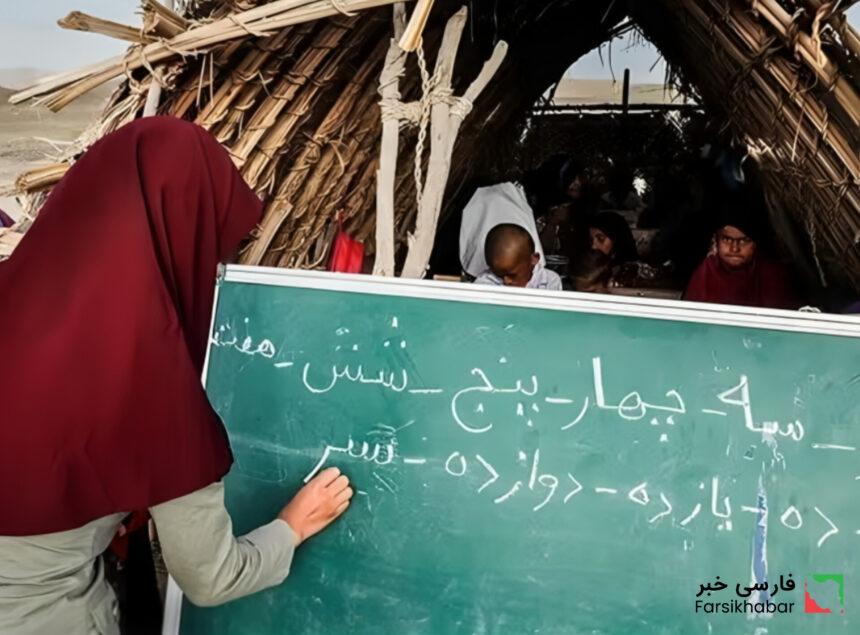 _ سه _ چهار _ پنج _ شش _ هفت
ده - یازده - دوازده - سیر
فارسی خبر
Farsikhabar